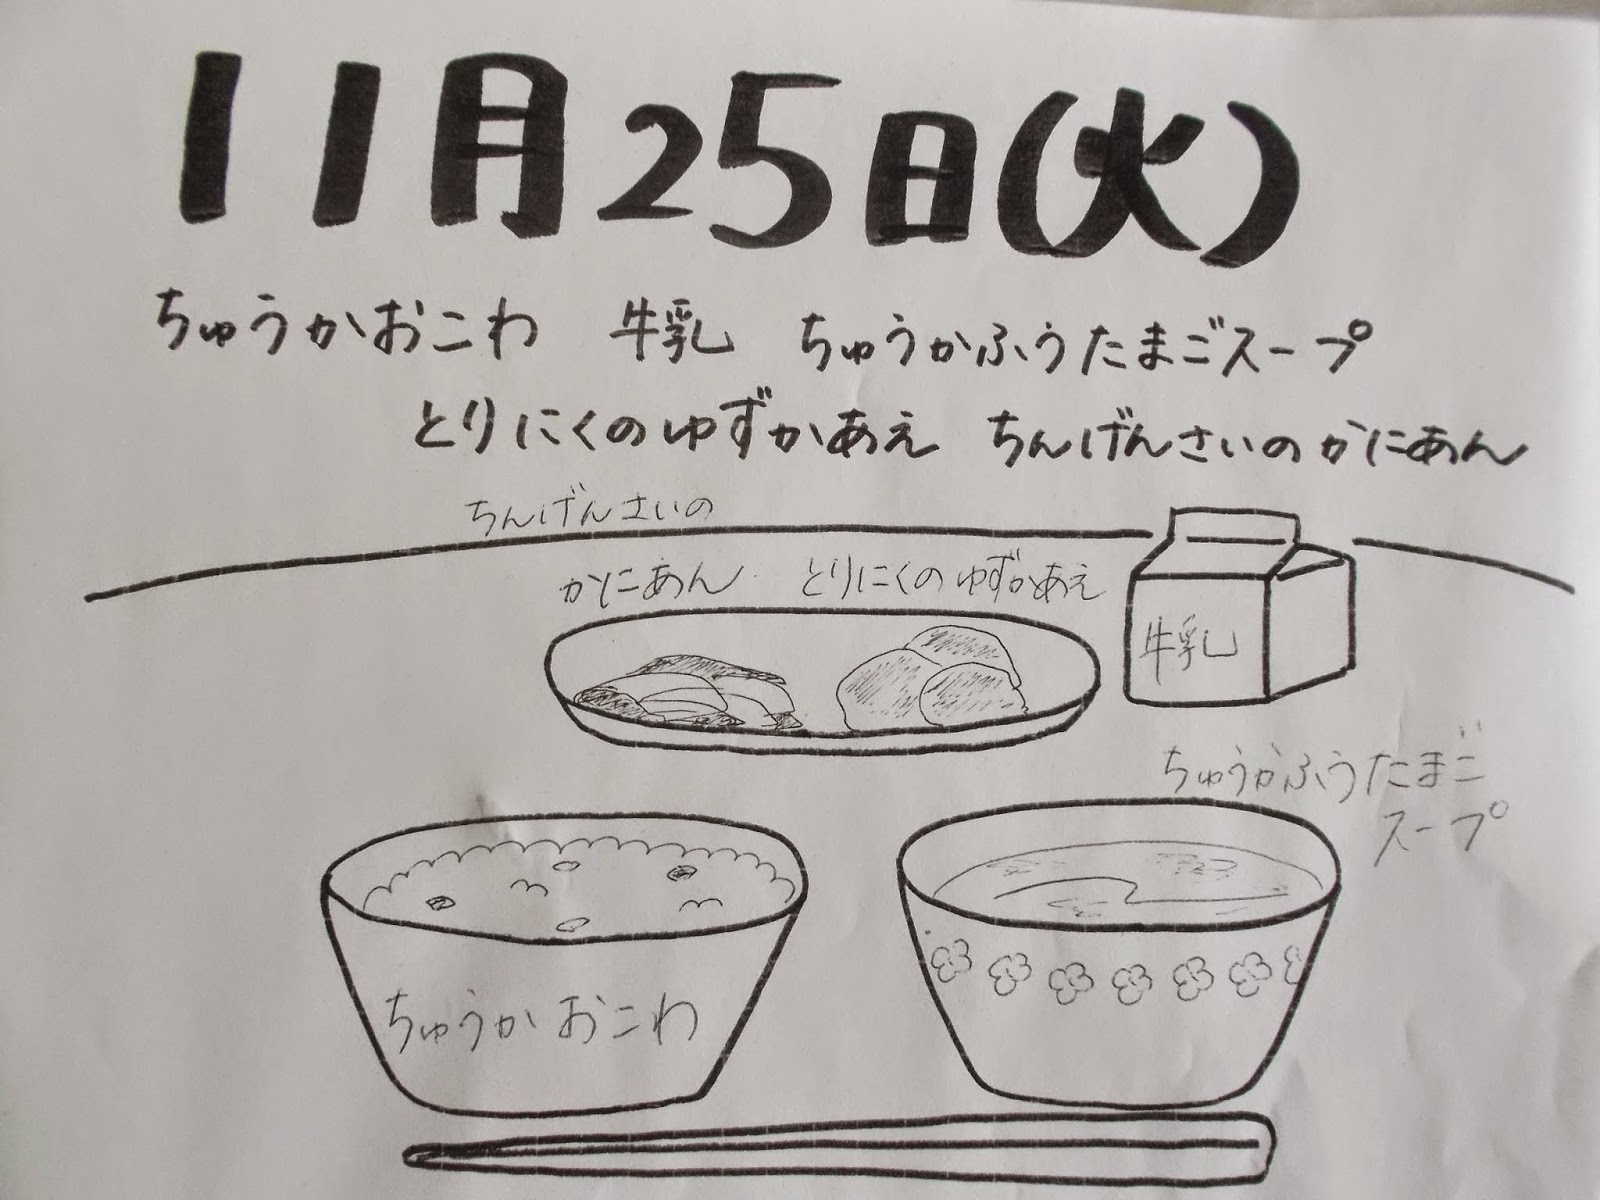 11月25日(火)
ちゅうかおこわ 牛乳 ちゅうかふうたまごスープ
とりにくのゆずかあえ ちんげんさいのかにあん
ちんげんさいの
かにあん
とりにくのゆずかあえ
牛乳
ちゅうかふうたまご
スープ
ちゅうかおこわ